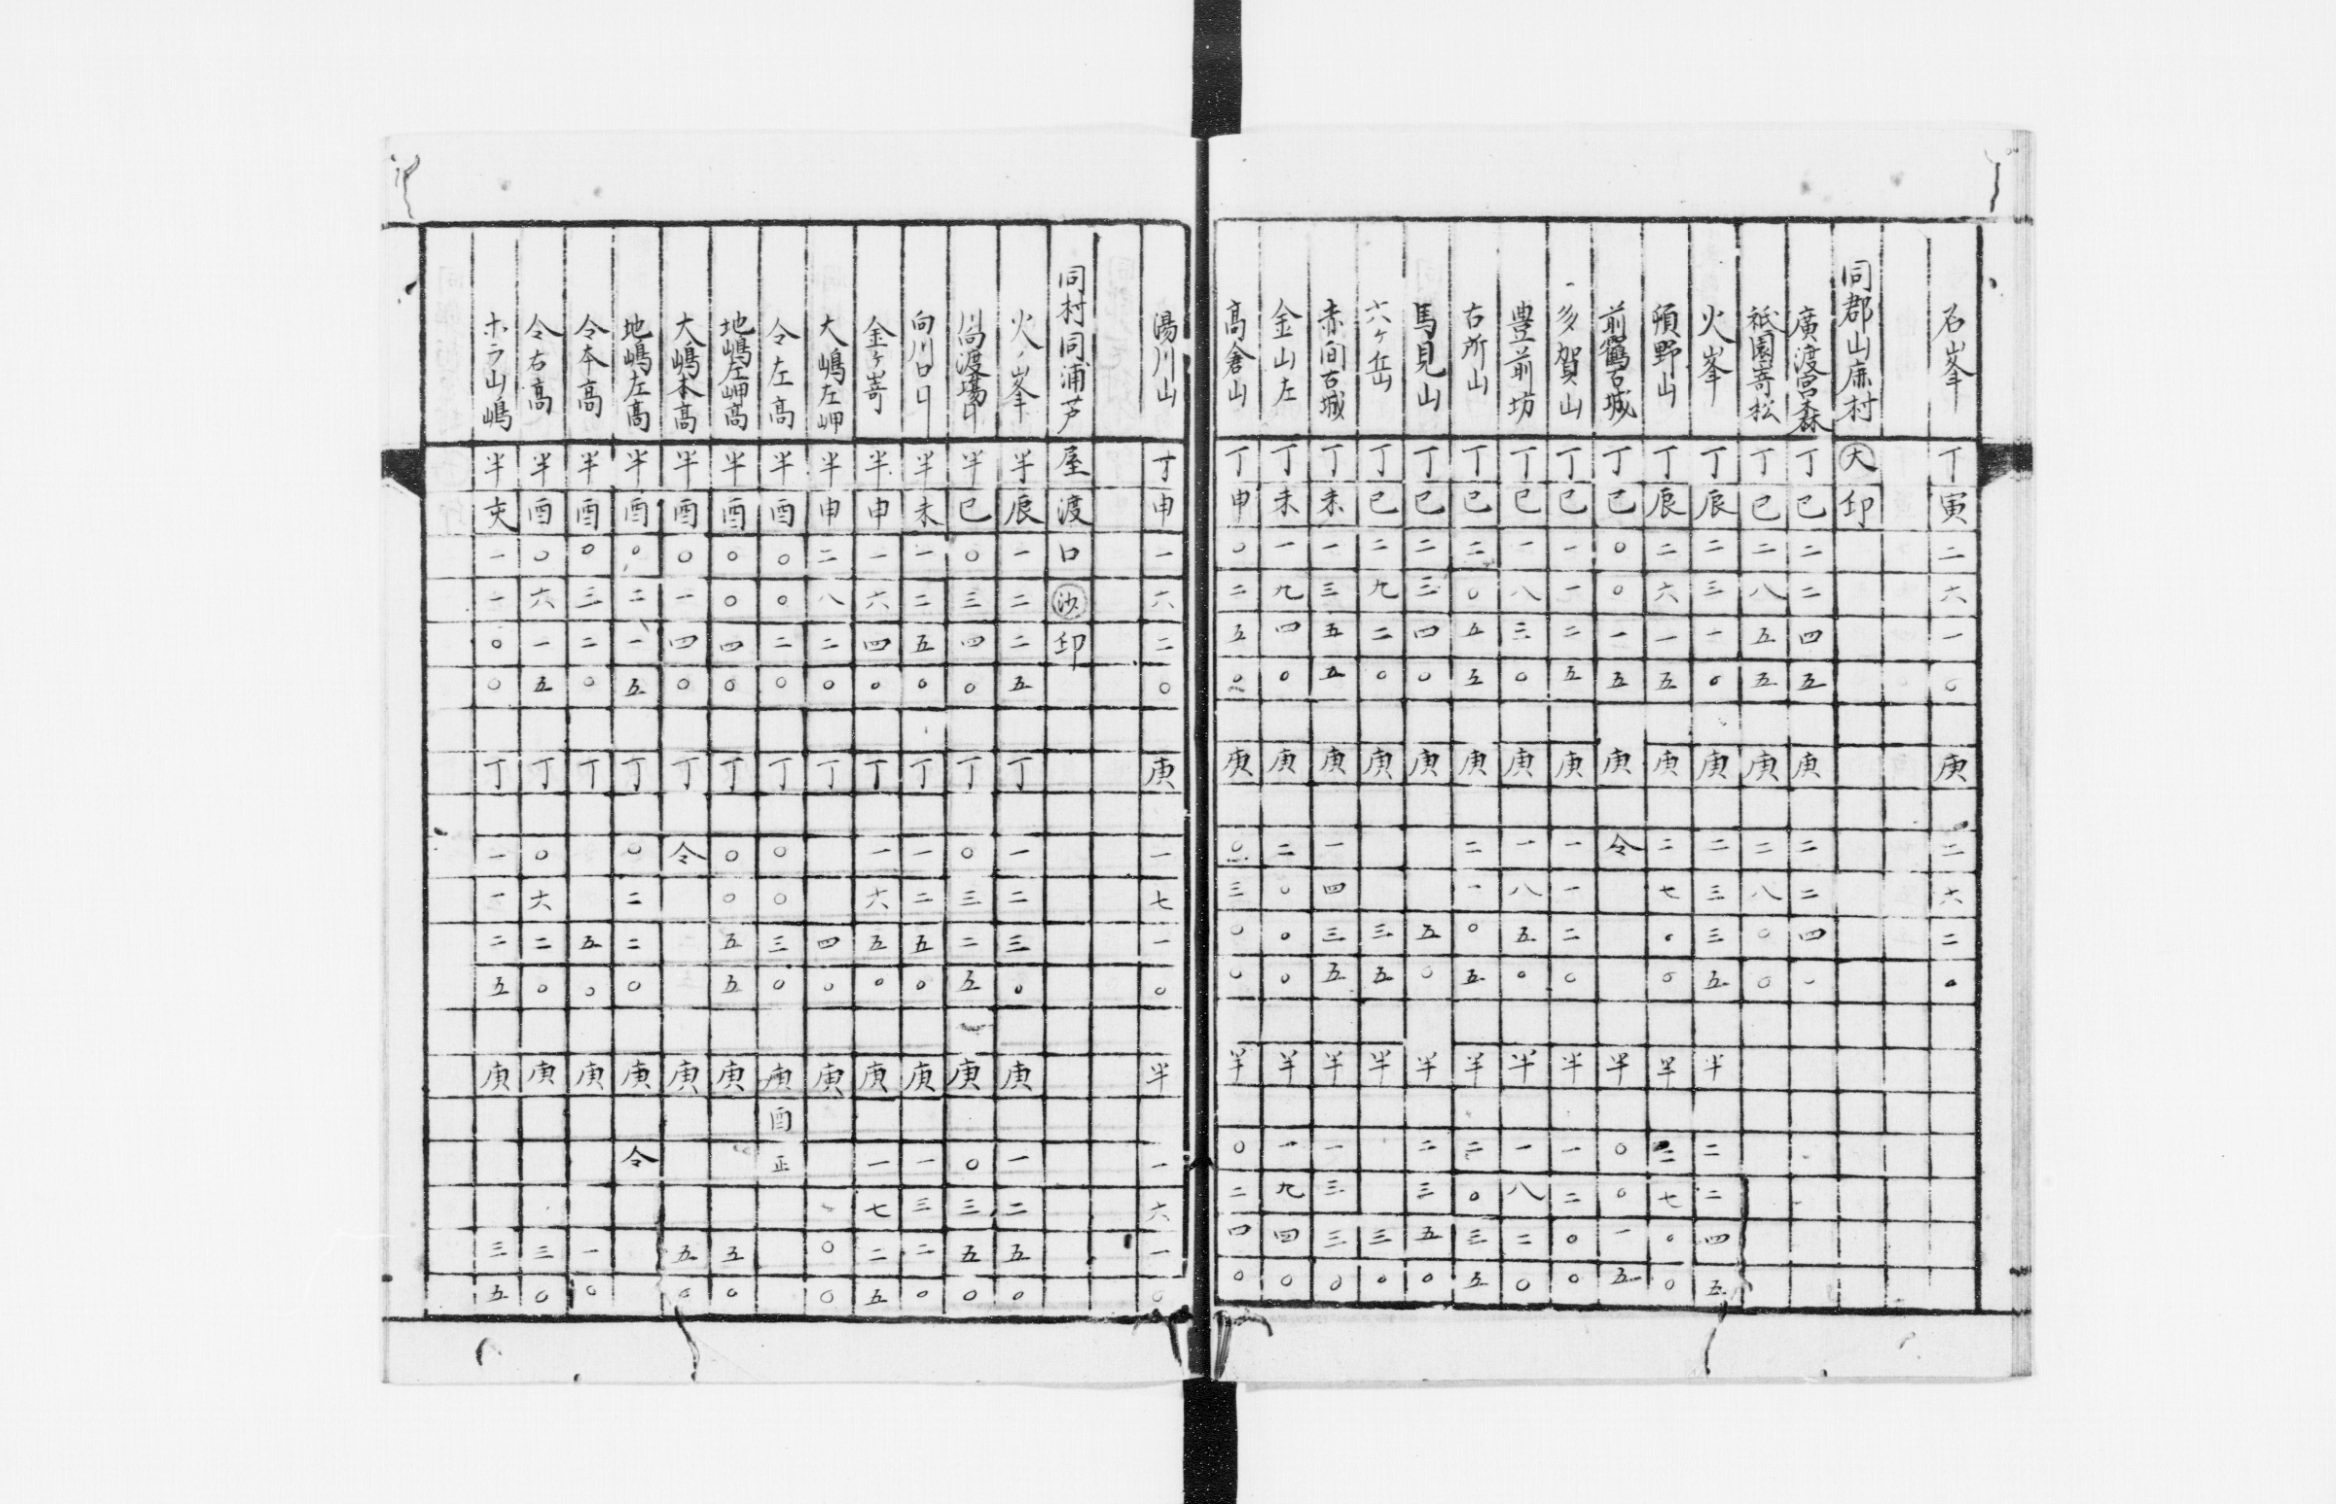 石峯 丁寅二六一〇 庚二六二〇
同郡山鹿村 大印
廣渡宮森 丁巳二二四五 庚二二四〇
祇園嵜松 丁巳二八五五 庚二八〇〇
火峯 丁辰二三一〇 庚二三三五 半二二四五
頓野山 丁辰二六一五 庚二七〇〇 半二七〇〇
前鶴古城 丁巳〇〇一五 庚令 半〇〇一五
多賀山 丁巳一一二五 庚一一二〇 半一二〇〇
豊前坊 丁巳一八三〇 庚一八五〇 半一八二〇
右所山 丁巳二〇五五 庚二一〇五 半二〇三五
馬見山 丁巳二三四〇 庚五〇 半二三五〇
六ヶ岳 丁巳二九二〇 庚三五 半三〇
赤间古城 丁未一三五五 庚一四三五 半一三三〇
金山左 丁未一九四〇 庚二〇〇〇 半一九四〇
高倉山 丁申〇二五〇 庚〇三〇〇 半〇二四〇
湯川山 丁申一六二〇 庚一七一〇 半一六一〇
同村同浦芦屋渡口 沙印
火ノ峯 半辰一二二五 丁一二三〇 庚一二五〇
渡場 半巳〇三四〇 丁〇三二五 庚〇三五〇
向川口 半未一二五〇 丁一二五〇 庚一三二〇
金ヶ嵜 半申一六四〇 丁一六五〇 庚一七二五
大嶋左岬 半申二八二〇 丁四〇 庚〇〇
令左高 半酉〇〇二〇 丁〇〇三〇 庚酉正
地嶋左岬高 半酉〇〇四〇 丁〇〇五五 庚五〇
大嶋本高 半酉〇一四〇 丁令 庚五〇
地嶋左高 半酉〇二一五 丁〇二二〇 庚令
令本高 半酉〇三二〇 丁五〇 庚一〇
令右高 半酉〇六一五 丁〇六二〇 庚三〇
ホラ山嶋 半亥一一〇〇 丁一一二五 庚三五